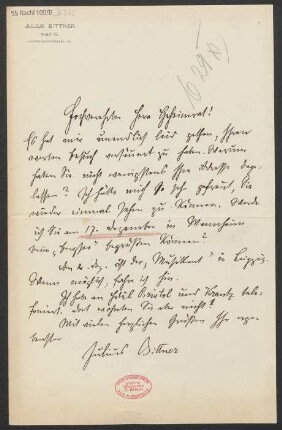 JULIUS BITTNER
WIEN
Hochverehrter Herr Geheimrat!
Es hat mir unendlich leid gethan, Ihren
werten Besuch versäumt zu haben. Warum
haben Sie nicht wenigstens Ihre Adresse der-
lassen? Ich hätte mich so sehr gefreut, Sie
wieder einmal sehen zu können. Werde
ich Sie am 17. Dezember in Mannheim
beim „ begrüßen können?
Am 2. Dez. ist der „Musikant" in Leipzig.
Wenn möglich, fahre ich hin.
Ich habe an Hôtel Bristol und Krantz tele-
foniert. Dort wohnten Sie aber nicht?
Mit vielen herzlichen Grüßen Ihr erge-
benster
Julius Bittner